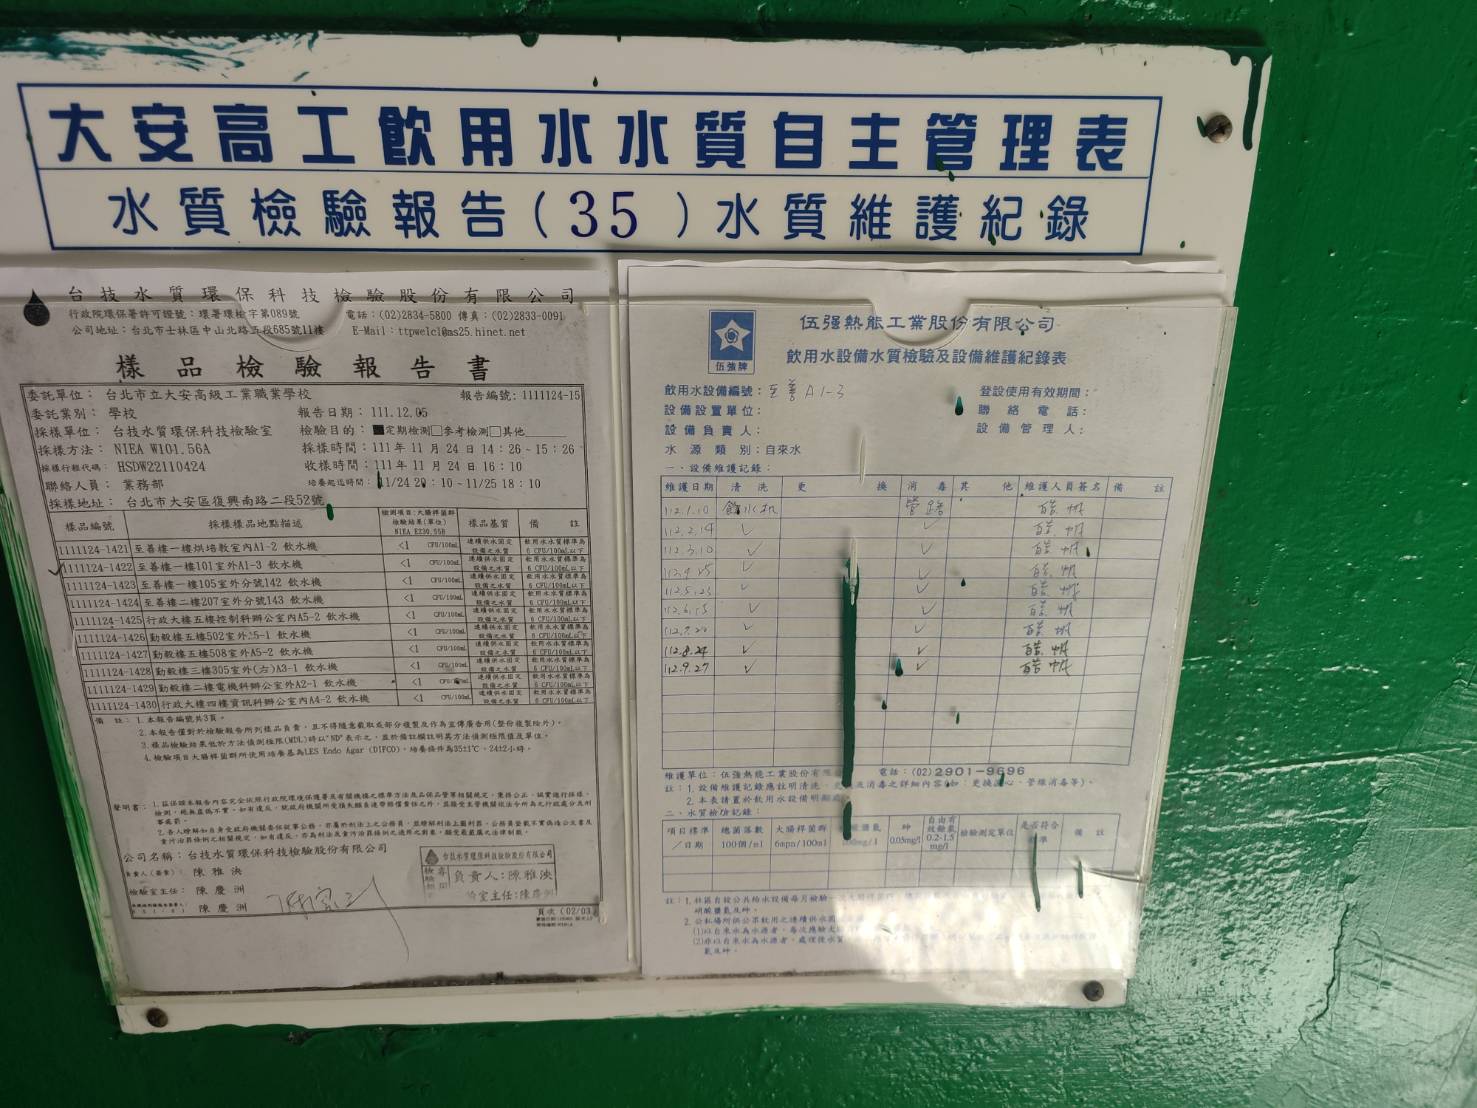 大安高工飲用水水質自主管理表
水質檢驗報告(35)水質維護紀錄
台技水質環保科技檢驗股份有限公司
行政院環保署許可證號：環署環檢字第089號 電話：(02)2834-5800 傳真：(02)2833-0091
公司地址：台北市士林區中山北路五段685號11樓 E-Mail：ttpwelcl@ms25.hinet.net
樣品檢驗報告書
委託單位：台北市立大安高級工業職業學校 報告編號：1111124-15
委託業別：學校 報告日期：111.12.05
採樣單位：台技水質環保科技檢驗室 檢驗目的：■定期檢測□參考檢測□其他
採樣方法：NIEA W101.56A 採樣時間：111年11月24日14：26-15：26
採樣行程代碼：HSDW22110424 收樣時間：111年11月24日16：10
聯絡人員：業務部 培養起迄時間：11/24 20：10~11/25 18：10
採樣地址：台北市大安區復興南路二段52號
樣品編號 採樣樣品地點描述 檢測項目：大腸桿菌群 檢驗結果(單位) NIEA E230.55B 樣品基質 備註
1111124-1421 至善樓一樓烘培教室內A1-2 飲水機 <1 CFU/100mL 連續供水固定設備之水質 飲用水水質標準為6 CFU/100mL以下
1111124-1422 至善樓一樓101室外A1-3 飲水機 <1 CFU/100mL 連續供水固定設備之水質 飲用水水質標準為6 CFU/100mL以下
1111124-1423 至善樓一樓105室外分號142 飲水機 <1 CFU/100mL 連續供水固定設備之水質 飲用水水質標準為6 CFU/100mL以下
1111124-1424 至善樓二樓207室外分號143 飲水機 <1 CFU/100mL 連續供水固定設備之水質 飲用水水質標準為6 CFU/100mL以下
1111124-1425 行政大樓五樓控制科辦公室內A5-2 飲水機 <1 CFU/100mL 連續供水固定設備之水質 飲用水水質標準為6 CFU/100mL以下
1111124-1426 勤毅樓五樓502室外A5-1 飲水機 <1 CFU/100mL 連續供水固定設備之水質 飲用水水質標準為6 CFU/100mL以下
1111124-1427 勤毅樓五樓508室外A5-2 飲水機 <1 CFU/100mL 連續供水固定設備之水質 飲用水水質標準為6 CFU/100mL以下
1111124-1428 勤毅樓三樓305室外(左)A3-1 飲水機 <1 CFU/100mL 連續供水固定設備之水質 飲用水水質標準為6 CFU/100mL以下
1111124-1429 勤毅樓二樓電機科辦公室外A2-1 飲水機 <1 CFU/100mL 連續供水固定設備之水質 飲用水水質標準為6 CFU/100mL以下
1111124-1430 行政大樓四樓資訊科辦公室內A4-2 飲水機 <1 CFU/100mL 連續供水固定設備之水質 飲用水水質標準為6 CFU/100mL以下
備註：1.本報告編號共3頁。
2.本報告僅對於檢驗報告所列樣品負責，且不得隨意截取或部分複製及作為宣傳廣告用(整份複製除外)。
3.樣品檢驗結果低於方法偵測極限(MDL)時以"ND"表示之，並於備註欄註明其方法偵測極限值及單位。
4.檢驗項目大腸桿菌群所使用培養基為LES Endo Agar (DIFCO)，培養條件為35±1℃，24±2小時。
公司名稱：台技水質環保科技檢驗股份有限公司
負責人(簽章)：陳雅泱
檢驗室主任：陳慶洲
陳慶洲
台技水質環保科技檢驗股份有限公司
負責人：陳雅泱
頁次(02/03
伍強牌
伍強熱能工業股份有限公司
飲用水設備水質檢驗及設備維護紀錄表
飲用水設備編號：至善A1-3 登設使用有效期間：
設備設置單位： 聯絡電話：
設備負責人： 設備管理人：
水源類別：自來水
一、設備維護記錄：
維護日期 清洗 更換 消毒 其他 維護人員簽名 備註
112.1.10 飲水机 管路
112.2.14 ✓ ✓
112.3.10 ✓ ✓
112.4.25 ✓ ✓
112.5.23 ✓ ✓
112.6.15 ✓ ✓
112.7.20 ✓ ✓
112.8.24 ✓ ✓
112.9.27 ✓ ✓
維護單位：伍強熱能工業股份有 電話：(02)2901-9696
註：1.設備維護記錄應註明清洗、及消毒之詳細內容(如：更換濾心、管線消毒等)。
2.本表請置於飲用水設備明顯
二、水質檢驗記錄：
項目標準／日期 總菌落數100個/ml 大腸桿菌群6mpn/100ml 砷0.05mg/l 自由有效餘氯0.2-1.5mg/l 檢驗測定單位 是否符合標準 備註